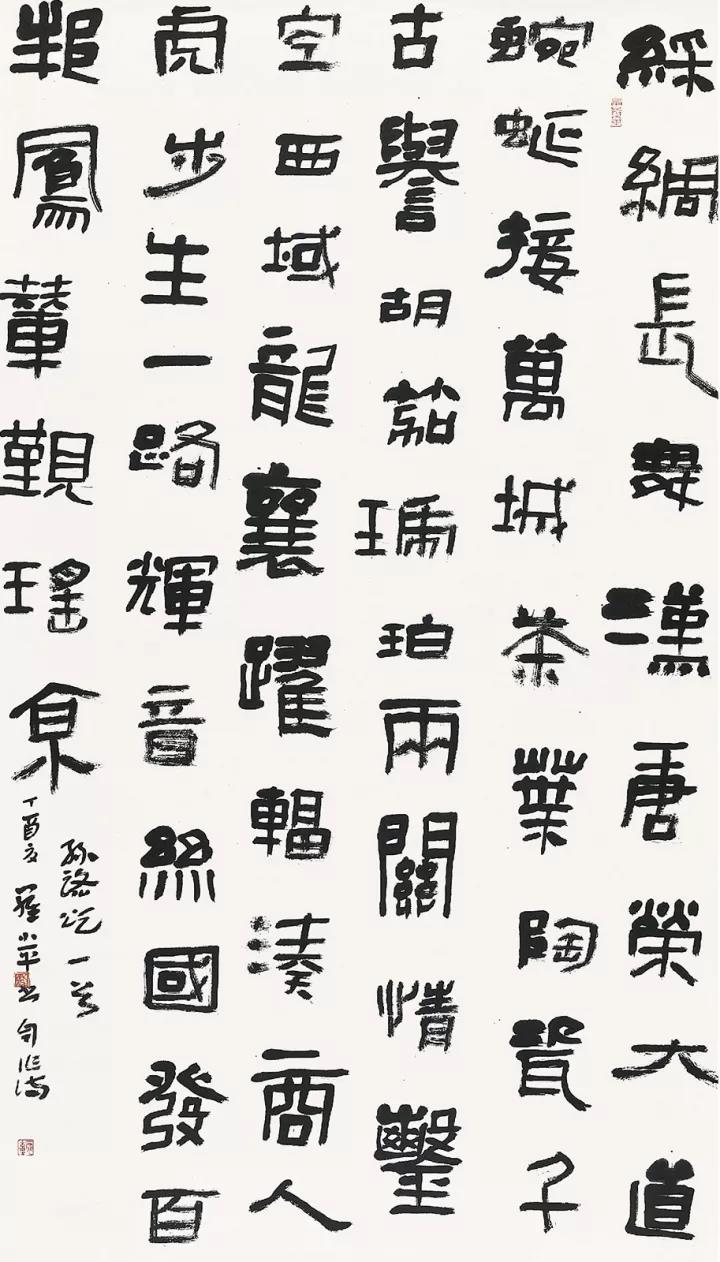 綵綢長舞漢唐榮大道
蜿蜒接萬城茶葉陶瓷千
古譽胡茄瑪珀兩關情鑿
空西域龍襄躍輻湊商人
虎步生一路輝音絲國發百
邦鳳輦覲瑤京
絲路頌一首
丁酉夏羅小平書自作詩